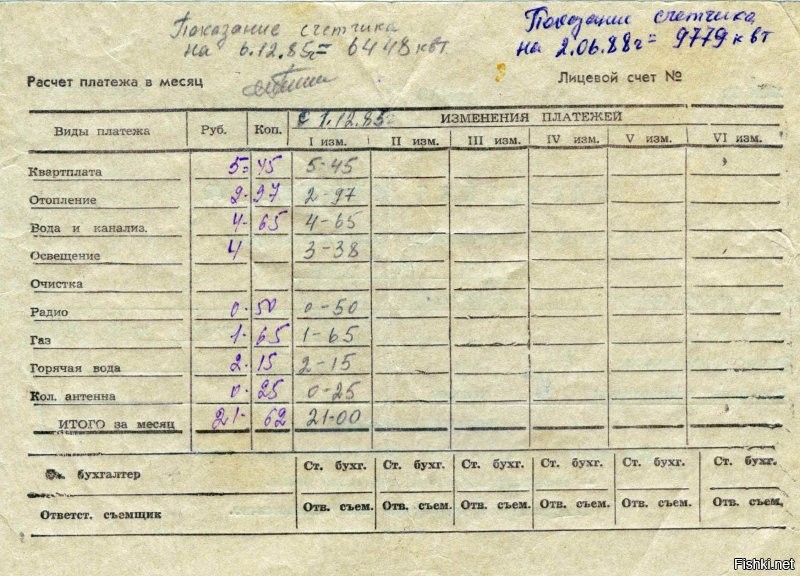 Показание счетчика
на 6.12.85г= 6448 квт
Показании счетчика
на 2.06.88г= 9779 квт
Расчет платежа в месяц
Лицевой счет №
Виды платежа Руб. Коп. с 1.12.85г ИЗМЕНЕНИЯ ПЛАТЕЖЕЙ
I изм. II изм. III изм. IV изм. V изм. VI изм.
Квартплата 5= 45 5-45
Отопление 2- 97 2-97
Вода и канализ. 4- 65 4-65
Освещение 4 3-38
Очистка
Радио 0- 50 0-50
Газ 1- 65 1-65
Горячая вода 2- 15 2-15
Кол. антенна 0- 25 0-25
ИТОГО за месяц 21- 62 21-00
бухгалтер Ст. бухг. Ст. бухг. Ст. бухг. Ст. бухг. Ст. бухг. Ст. бухг.
Ответст. съемщик Отв. съем. Отв. съем. Отв. съем. Отв. съем. Отв. съем. Отв. съем.
Fishki.net